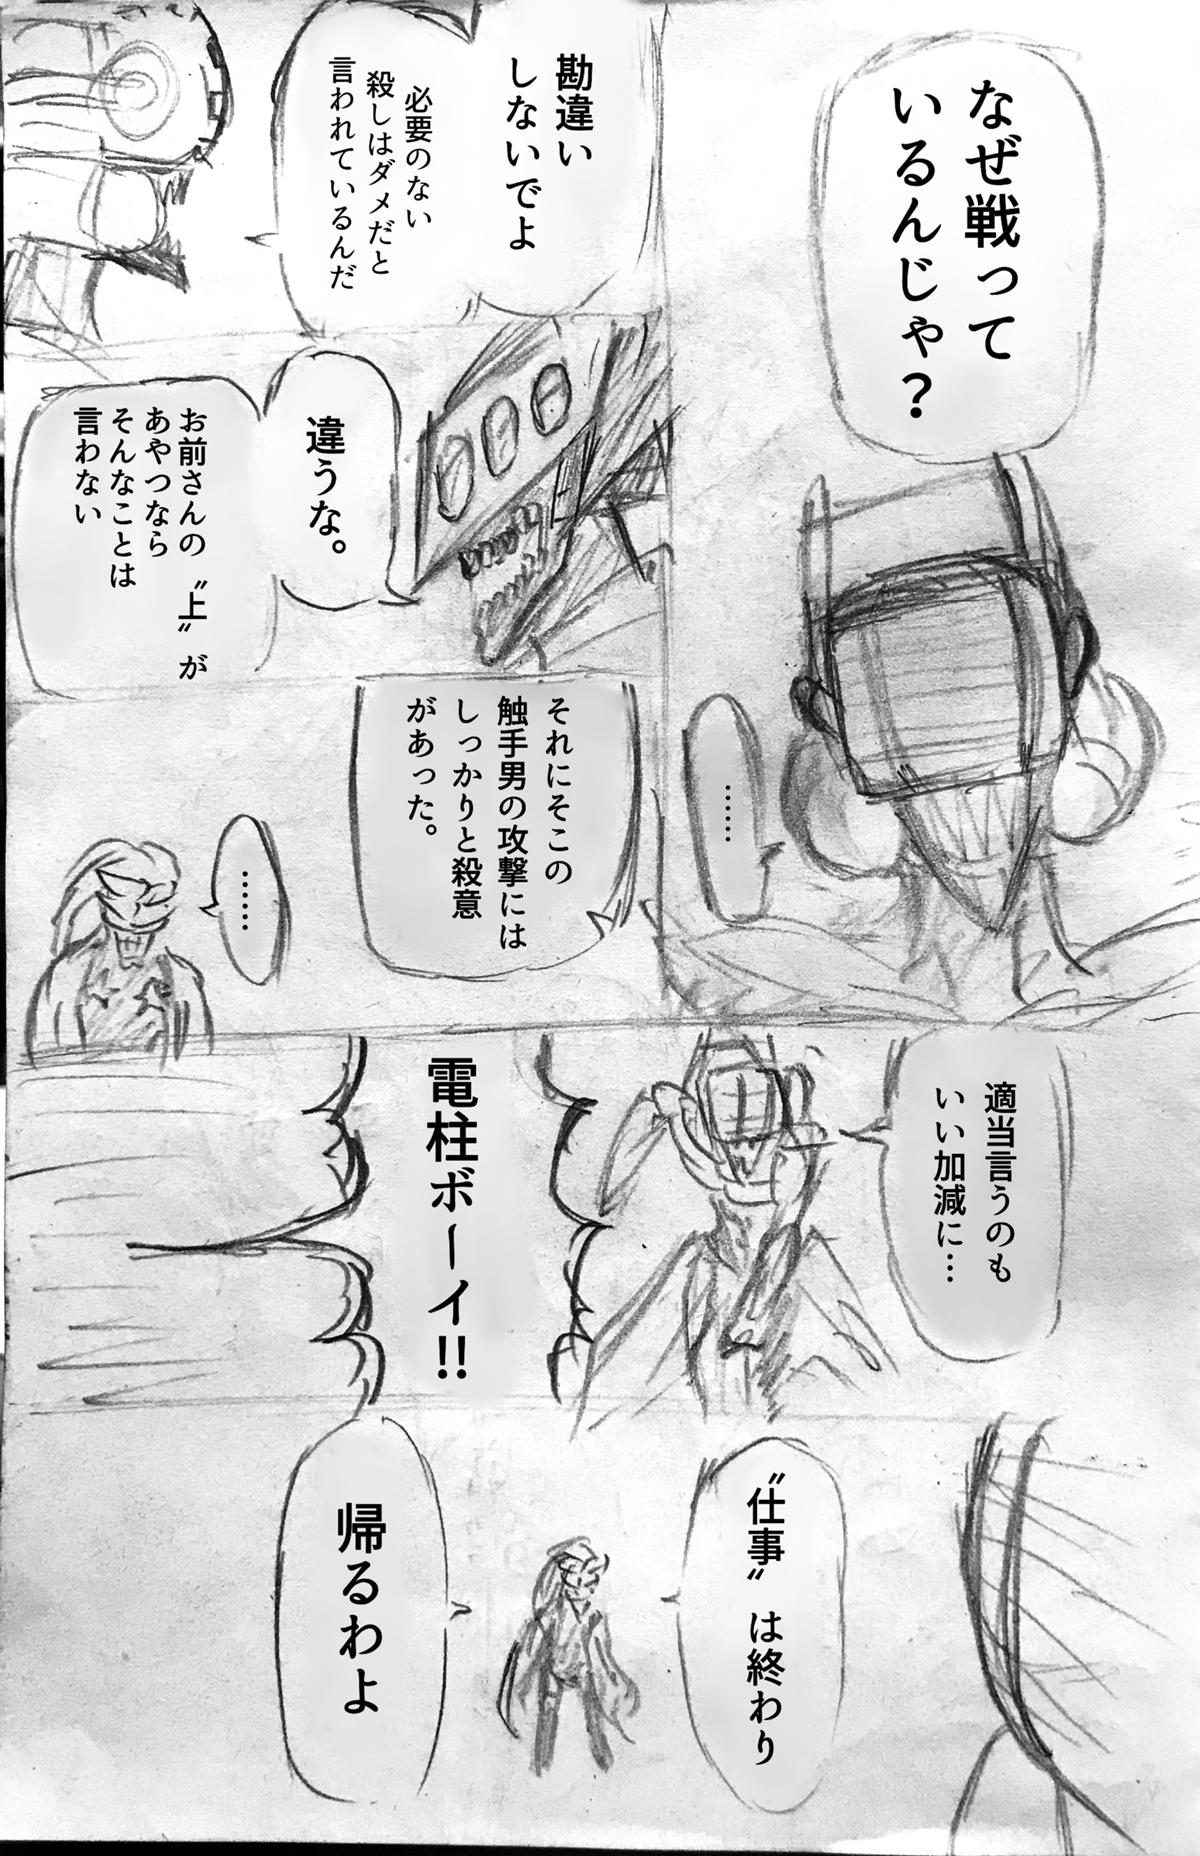 なぜ戦って
いるんじゃ？
……
勘違い
しないでよ
必要のない
殺しはダメだと
言われているんだ
違うな。
お前さんの〝上〟が
あやつなら
そんなことは
言わない
それにそこの
触手男の攻撃には
しっかりと殺意
があった。
……
適当言うのも
いい加減に…
電柱ボーイ!!
〝仕事〟は終わり
帰るわよ